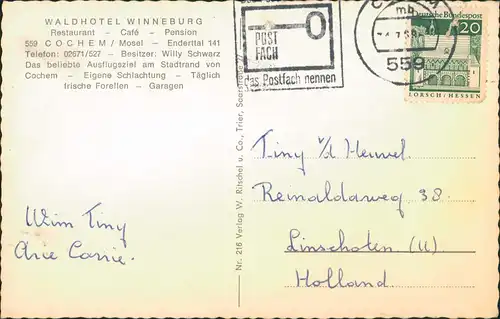 WALDHOTEL WINNEBURG
Restaurant - Café - Pension
559 COCHEM / Mosel - Enderttal 141
Telefon: 02671/527 - Besitzer: Willy Schwarz
Das beliebte Ausflugsziel am Stadtrand von
Cochem - Eigene Schlachtung - Täglich
frische Forellen - Garagen
POST
FACH
das Postfach nennen
mb
559
Deutsche Bundespost
20
LORSCH/HESSEN
Nr. 216 Verlag W. Ritschel u. Co., Trier, Saarstraße
Tiny v/d Heuvel.
Reinaldaweg 38.
Linschoten (U)
Holland.
Wim Tiny
Arie Corrie.